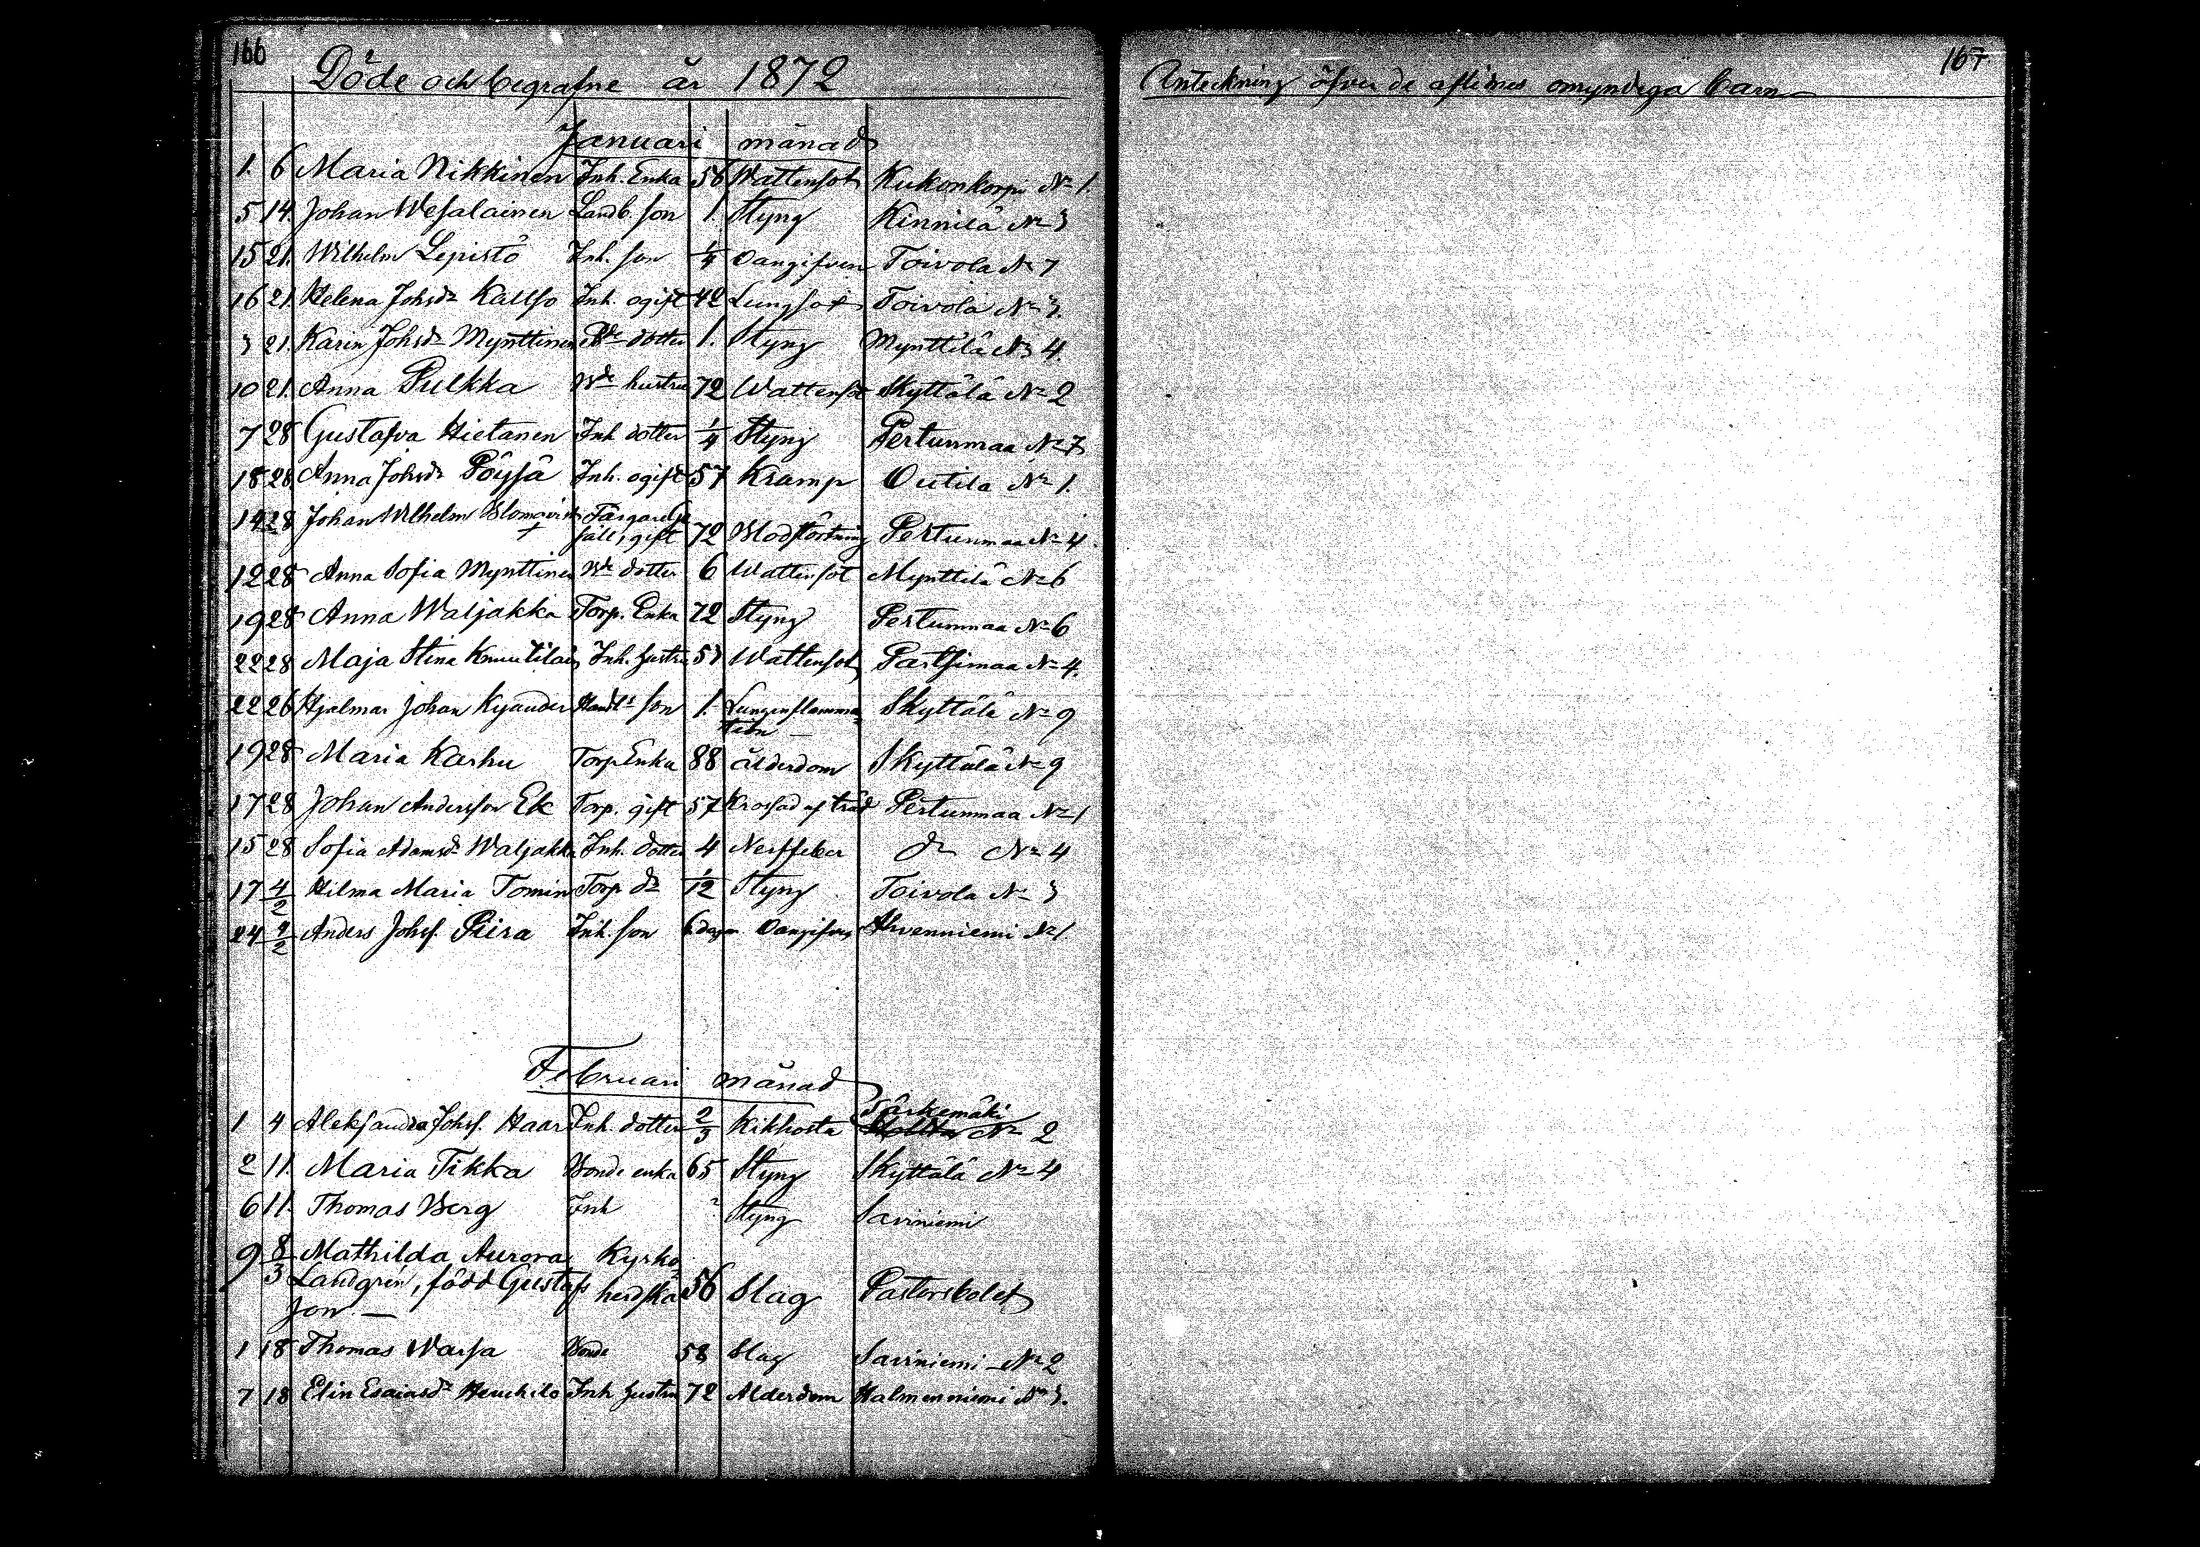 166
Döde och begrafne år 1872
Januari månad
1. 6 Maria Nikkinen Inh. Enka 56 Wattensot Kukonkorpi No 1.
5 14 Johan Wesalainen Landb. son 1. Styng Kinnilä No 3
15 21. Wilhelm Lepistö Inh. son 1/4 Oangifven Toivola No 7
16 21. Helena Johsdr Kallso Inh. ogift 42 Lungsot Toivola No 3.
3 21. Karin Johsdr Mynttinen dotter 1. Styng Mynttilä No 4.
10 21. Anna Pulkka Bde hustru 72 Wattensot Skyttälä No 2
7 28 Gustafva Hietanen Inh dotter 1/4 Styng Pertunmaa No 7
18 28. Anna Johsdr Pöysä Inh. ogift 57 Kramp Outila No 1.
14 28 Johan Wilhelm Blomqvist Färgare
gift 72 Blodstörtning Pertunmaa No 4.
12 28 Anna Sofia Mynttinen Bde dotter 6 Wattensot Mynttilä No 6
19 28 Anna Waljakka Torp. Enka 72 Styng Pertunmaa No 6
22 28 Maja Stina Knuutilain Inh. hustru 57 Wattensot Partsimaa No 4.
22 26 Hjalmar Johan Kyander Handls son 1. Lunginflamma
tion Skyttälä No 9
19 28 Maria Karhu Torp Enka 88 ålderdom Skyttälä No 9
17 28 Johan Andersson Ek Torp. gift 57 Krossad af träd Pertunmaa No 1
15 28 Sofia Adamsdr Waljakka Inh. dotter 4 Nerffeber do No 4
17 4/2 Hilma Maria Tomin Torp dr 1/12 Styng Toivola No 3
24 4/2 Anders Johss. Piira Inh. son 6 dagar Oangifven Ahvenniemi No 1.
Februari månad
1 4 Aleksandra Johss. Haar Inh. dotter 2/3 Kikhosta Särkemäki No 2
2 11. Maria Tikka Bonde enka 65 Styng Skyttälä No 4
6 11. Thomas Berg Inh ? Styng Saviniemi
9 8/3 Mathilda Aurora Kyrko
Landgren, född Gustafs herdska 56 Slag Pastorsbolet
son —
1 18 Thomas Warsa Bonde 58 Slag Saviniemi No 2
7 18 Elin Esaiasdr Heuchilo Inh hustru 72 Alderdom Halmenniemi No 3.
167
Anteckning öfver de aflidnes omyndiga barn